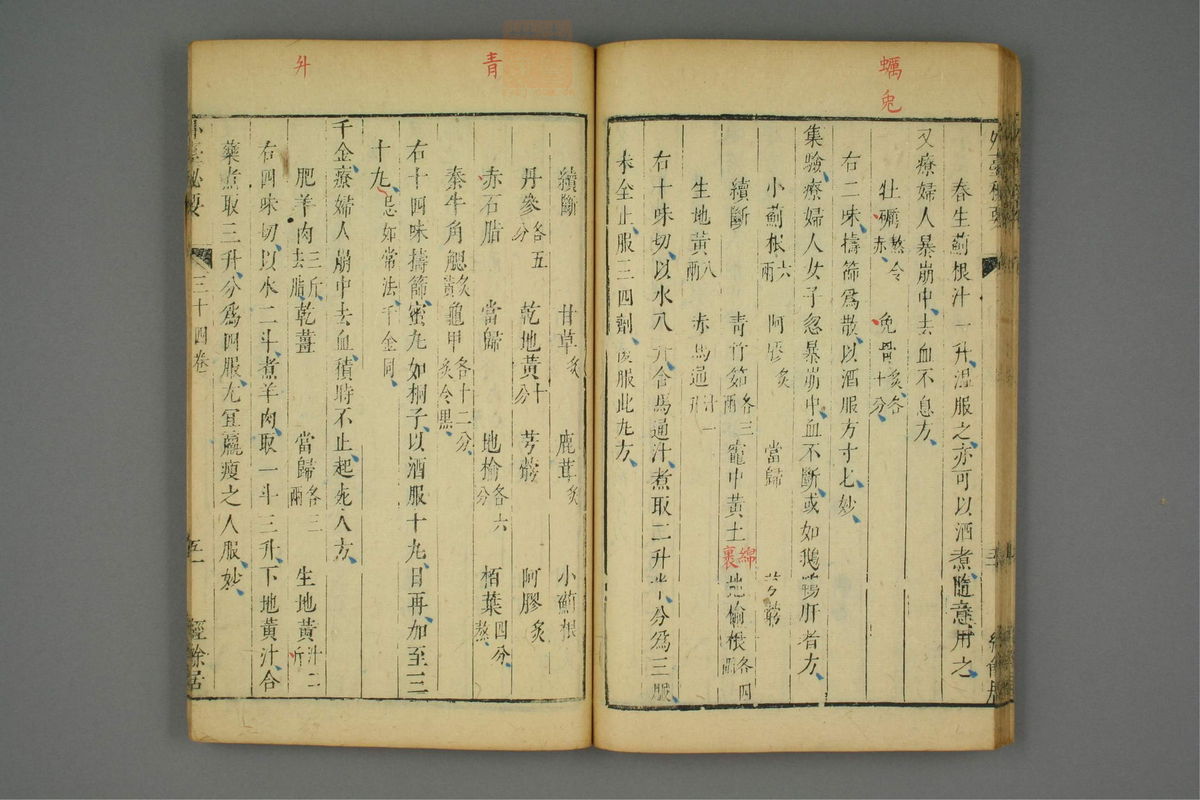 蠣
兔
春生薊根汁一升溫服之亦可以酒煮隨意用之
又療婦人暴崩中去血不息方
牡礪熬令赤 兔骨炙各十分
右二味擣篩爲散以酒服方寸匕妙
集驗療婦人女子忽暴崩中血不斷或如鵝鴨肝者方
小薊根六兩 阿膠炙 當歸 芎藭
續斷 青竹筎各三兩 竈中黃土綿裹 地榆根各四兩
生地黃八兩 赤馬通汁一升
右十味切以水八升合馬通汁煮取二升半分爲三服
未全止服三四劑後服此丸方
青
升
續斷 甘草炙 鹿茸炙 小薊根
丹參各五分 乾地黃十分 芎藭 阿膠炙
赤石脂 當歸 地榆各六分 栢葉四分熬
秦牛角䚡炙黃 龜甲各十二分炙令黑
右十四味擣篩蜜丸如桐子以酒服十丸日再加至三
十丸忌如常法千金同
千金療婦人崩中去血積時不止起死人方
肥羊肉三斤去脂 乾薑 當歸各三兩 生地黃汁二斤
右四味切以水二斗煮羊肉取一斗三升下地黃汁合
藥煮取三升分爲四服尤宜羸瘦之人服妙
三十四卷
五一
經餘居